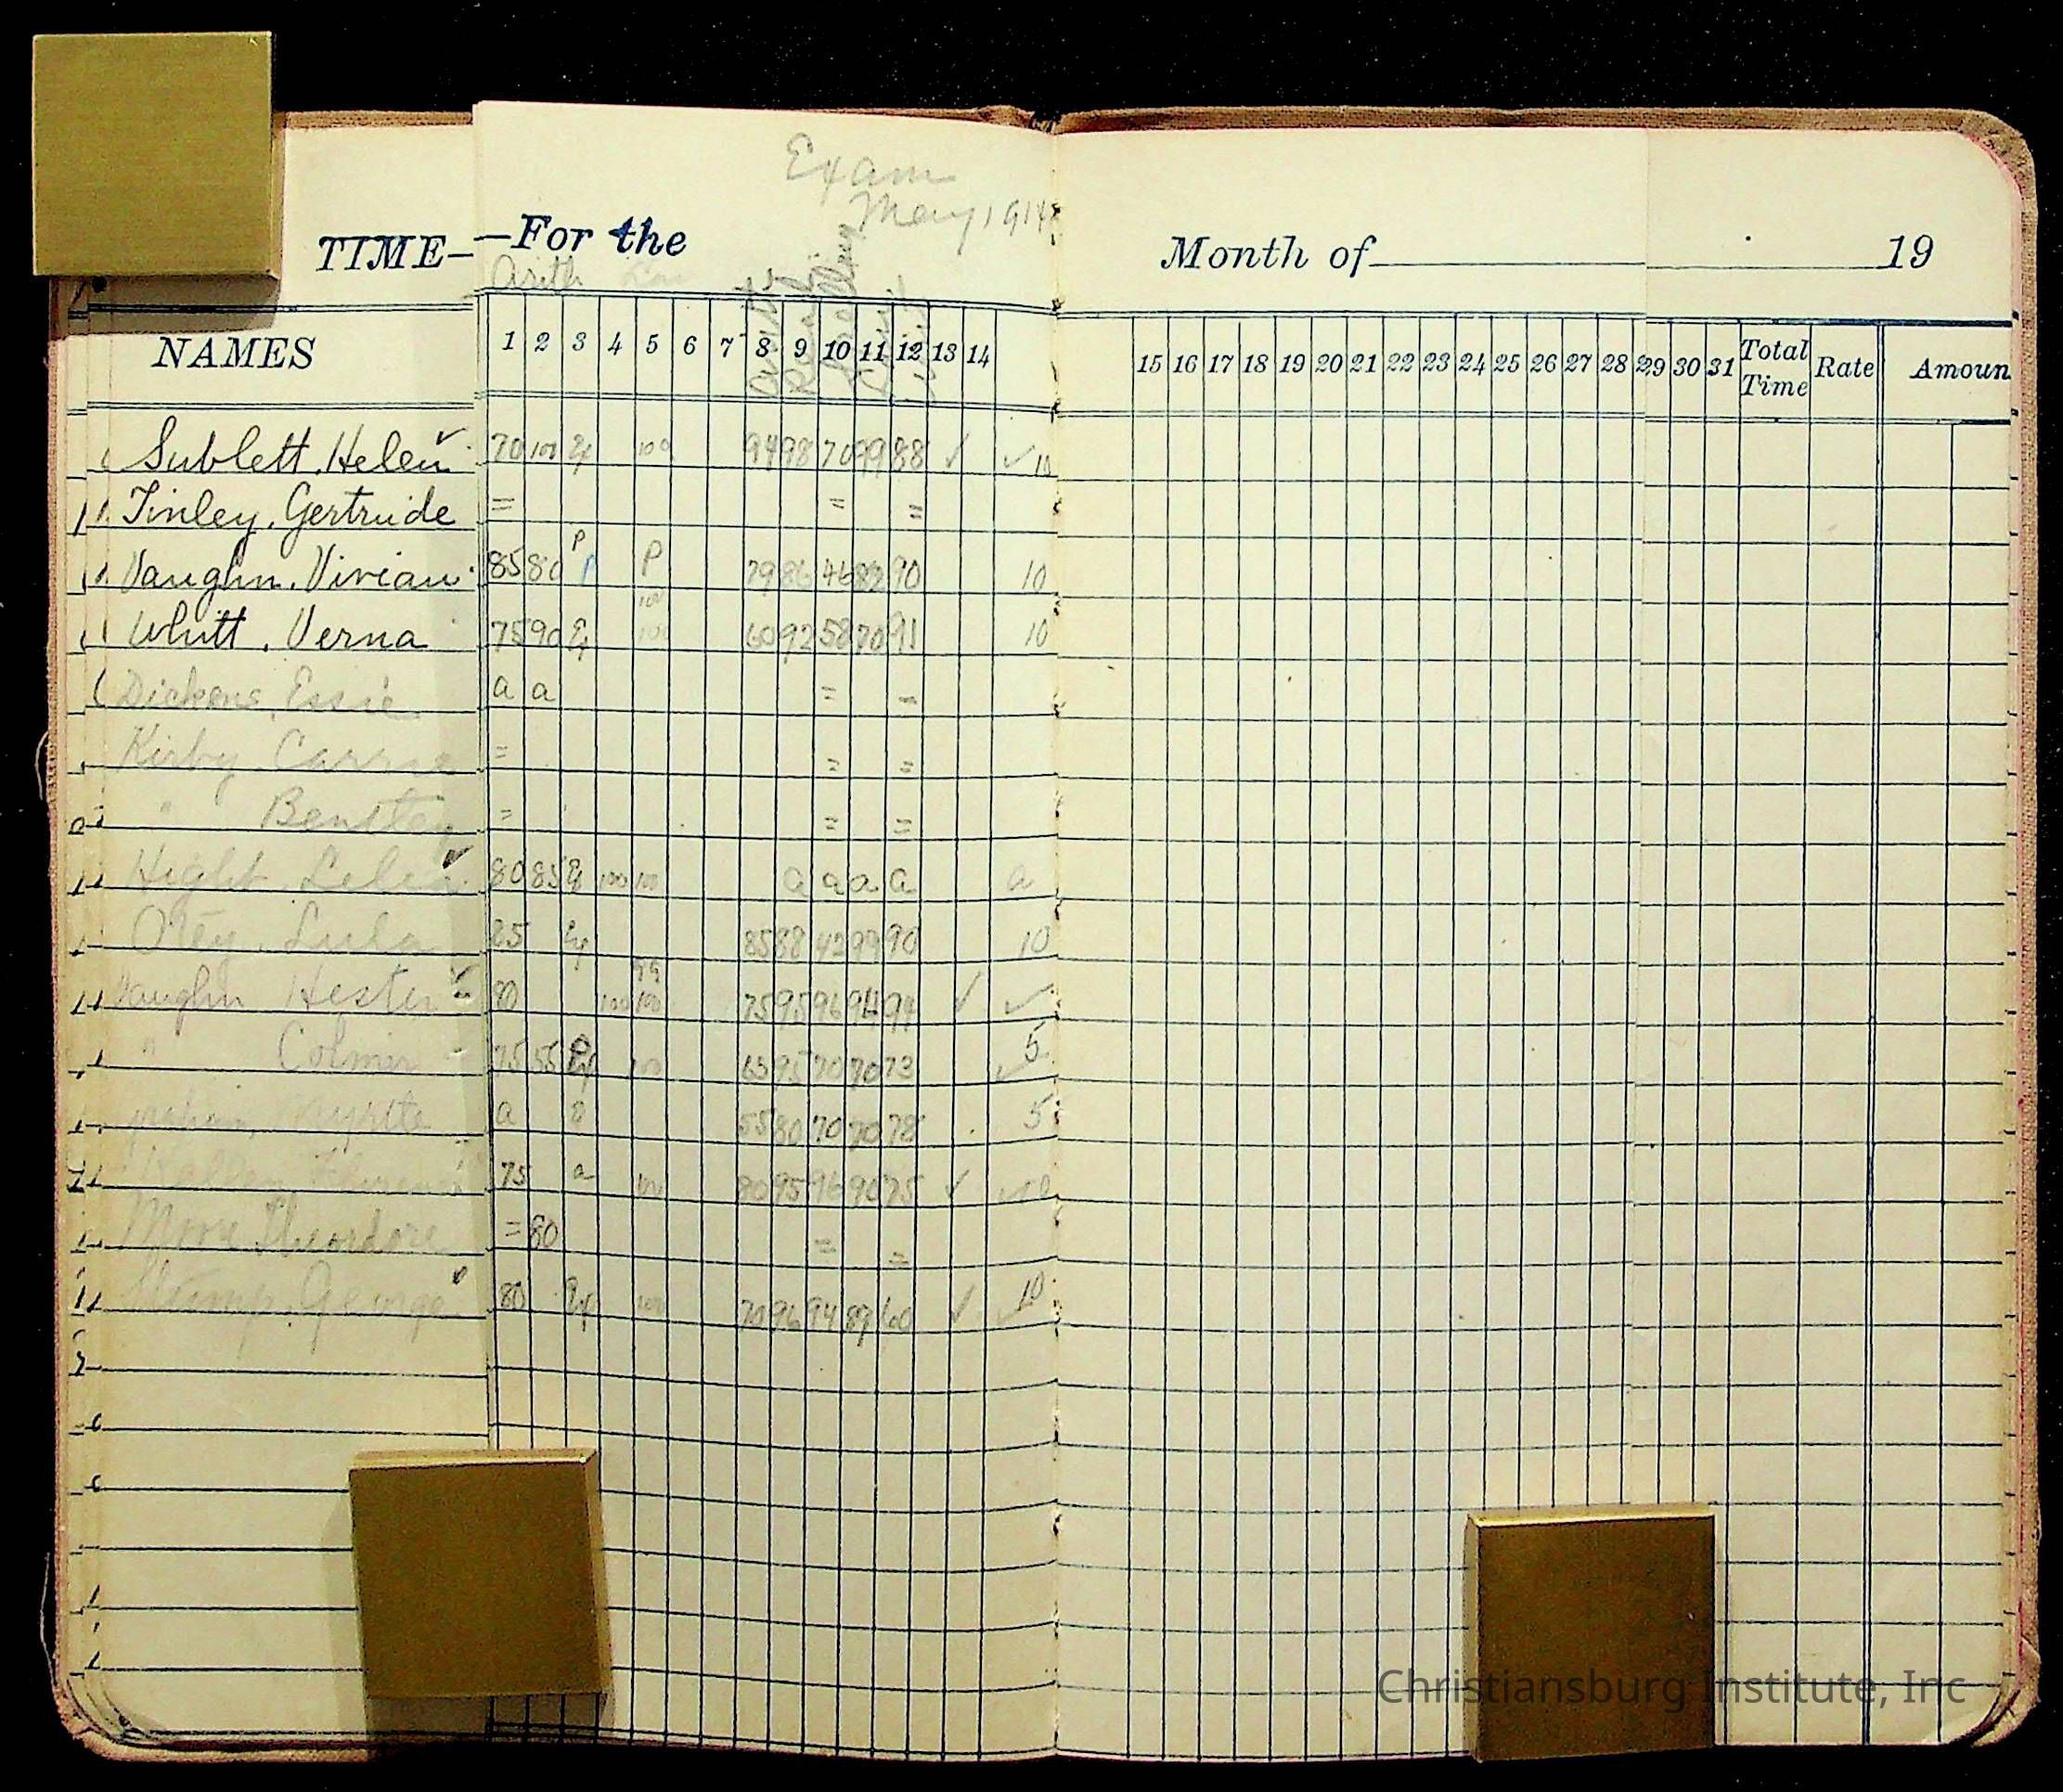 Exam
May 1914
TIME—For the Month of 19
Arith
NAMES 1 2 3 4 5 6 7 8 9 10 11 12 13 14 15 16 17 18 19 20 21 22 23 24 25 26 27 28 29 30 31 Total Time Rate Amoun
Sublett, Helen ✓ 70 100 100 94 98 70 99 88 ✓ ✓ 10
Finley, Gertrude = = =
Vaughn, Vivian 85 80 P P P 79 86 46 82 90 10
Whitt, Verna 75 90 100 100 60 92 58 70 91 10
Dickens, Essie a a = =
Kirby Carrie = = =
" Bentley = = =
Hight 80 85 100 100 a a a a a
Otey, Lula 85 88 42 99 90 10
Vaughn Hester 80 99 100 100 75 95 96 94 94 ✓ ✓
" 75 55 100 65 95 70 70 73 5 ✓
Myrtle a 55 80 70 70 78 5
75 a 100 80 95 96 90 75 ✓
Theodore = 80 = =
George 80 100 70 96 94 89 60 ✓ 10
Christiansburg Institute, Inc